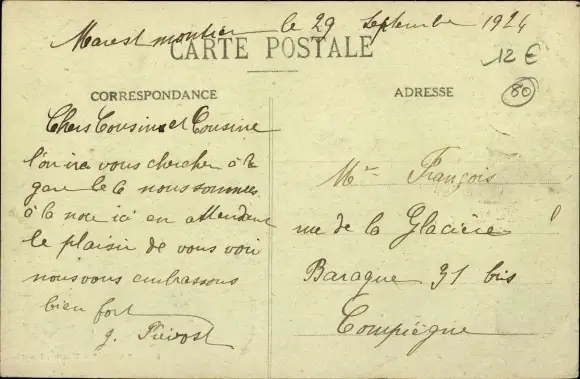 Marestmontier le 29 Septembre 1924
CARTE POSTALE
12 €
80
CORRESPONDANCE
ADRESSE
Chers Cousins et Cousine
l'on ira vous chercher à la
gare le 6 nous sommes
à la noce ici en attendant
le plaisir de vous voir
nous vous embrassons
bien fort
Mr François
rue de la Glacière
Baraque 31 bis
Compiègne